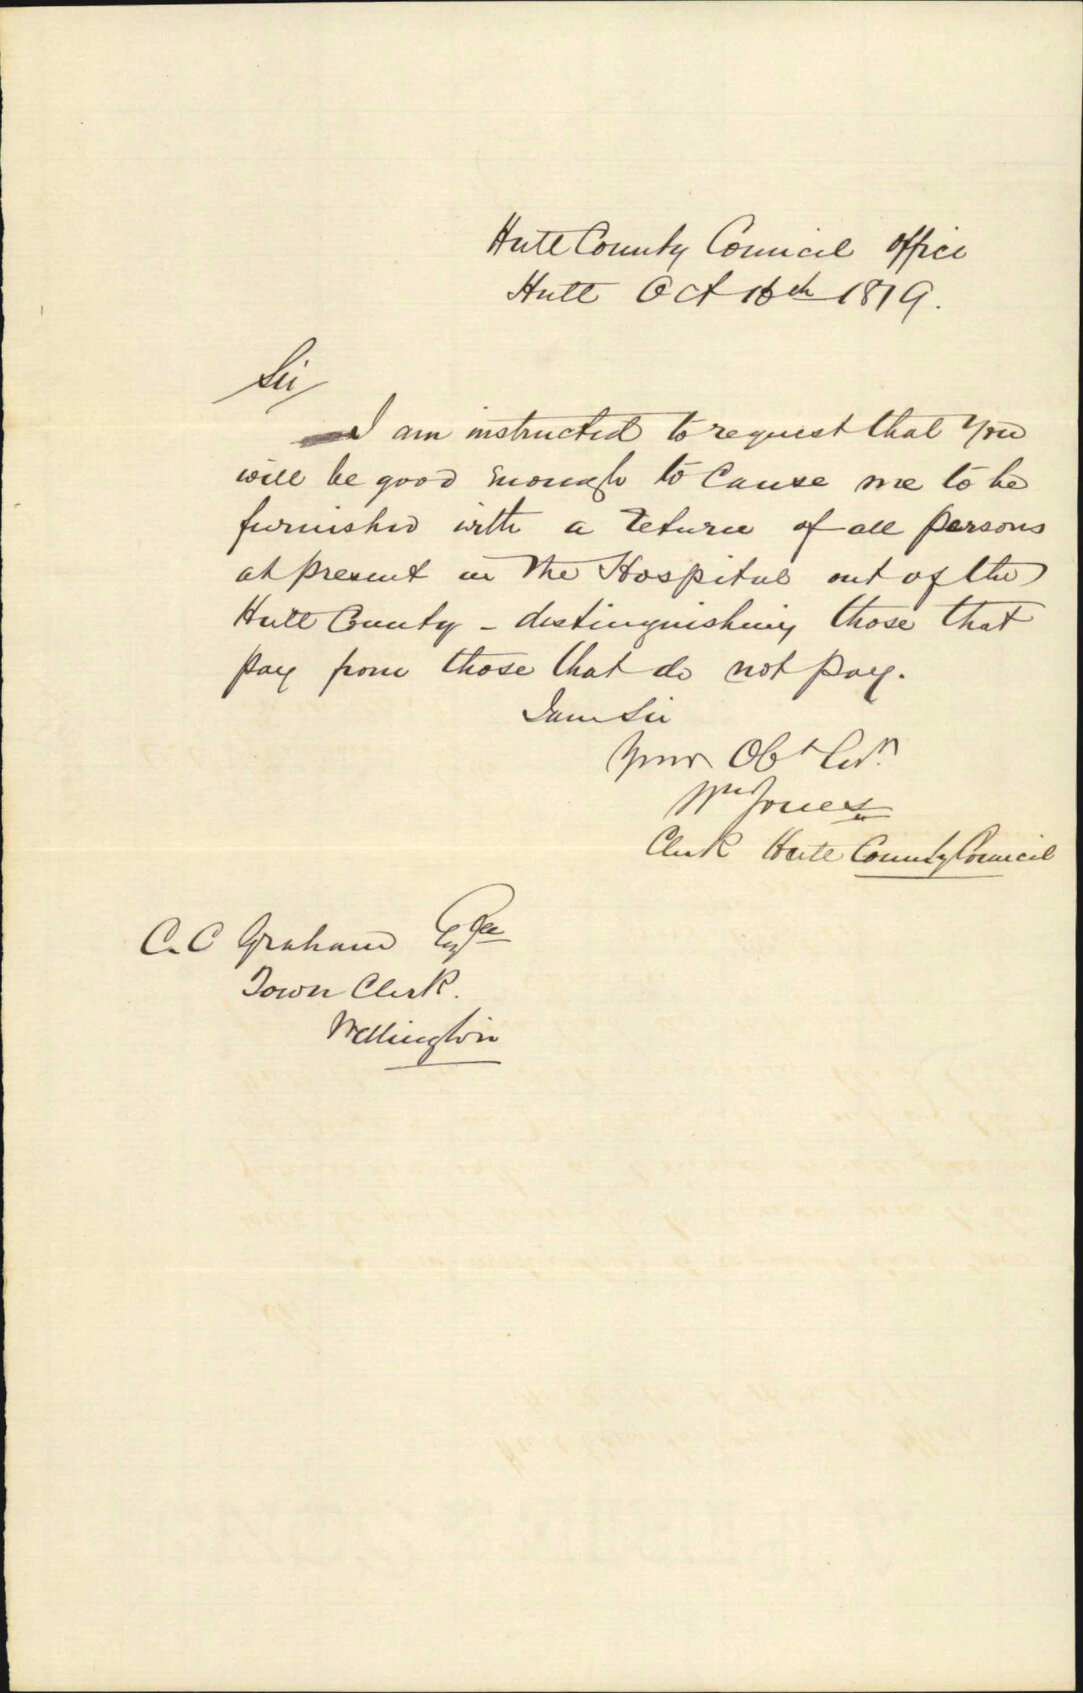 Hutt County Council office
Hutt Oct 16th 1879.
Sir
I am instructed to request that you
will be good enough to cause me to be
furnished with a return of all persons
at present in the Hospital out of the
Hutt County - distinguishing those that
pay from those that do not pay.
I am Sir
Your Obt Svt.
Wm Jones
Clerk Hutt County Council
C. C Graham Esqre
Town Clerk.
Wellington